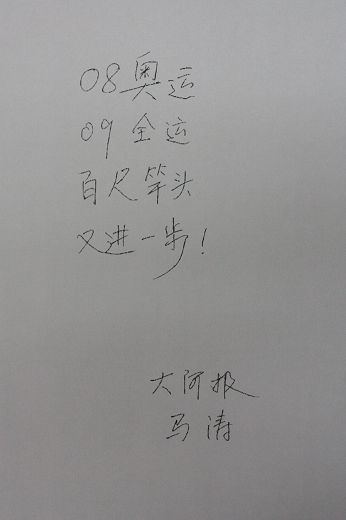 08奥运
09全运
百尺竿头
又进一步!
大河报
马涛